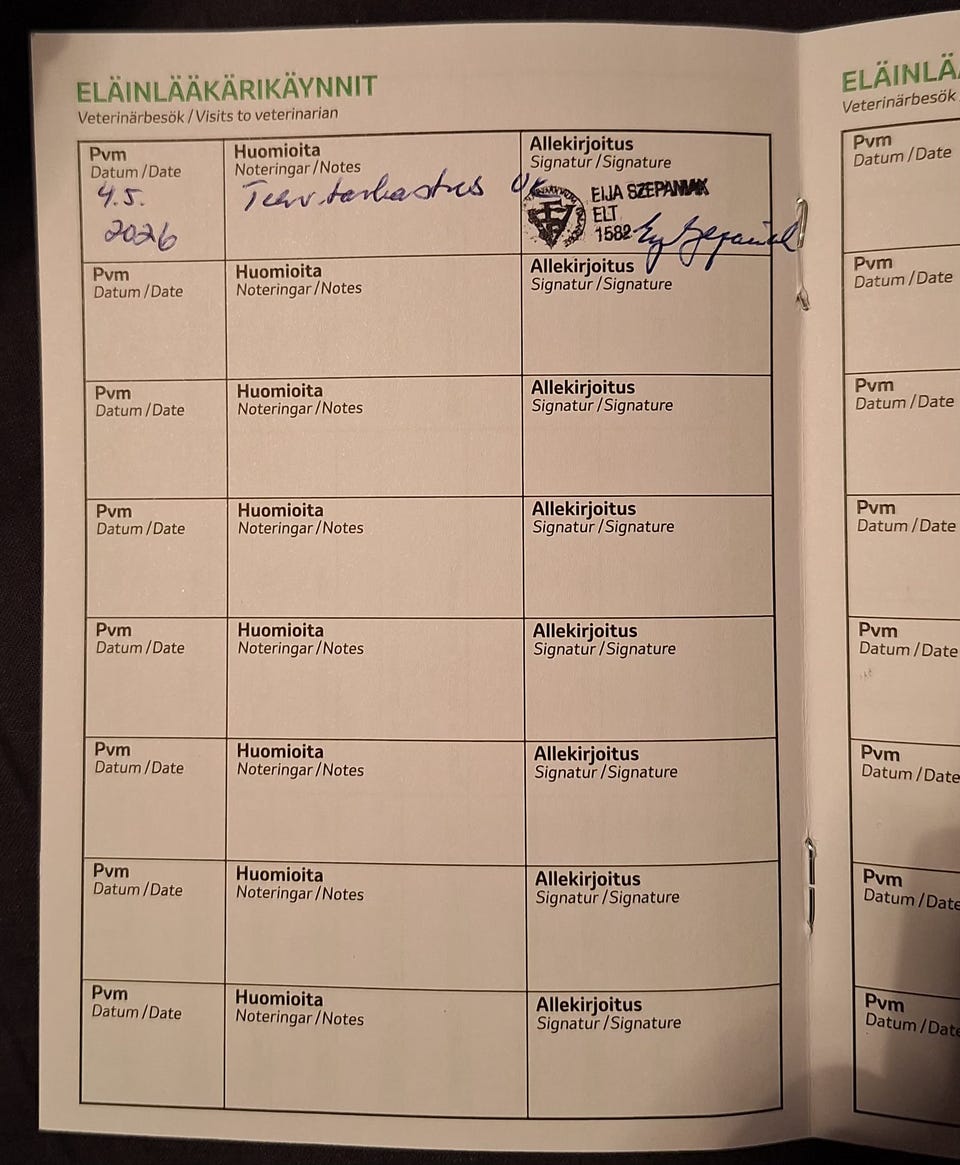 ELÄINLÄÄKÄRIKÄYNNIT
Veterinärbesök / Visits to veterinarian
Pvm
Datum / Date
4.5.
2026
Huomioita
Noteringar / Notes
Terv.tarkastus OK
Allekirjoitus
Signatur / Signature
EIJA SZEPANIAK
ELT
1582
Pvm
Datum / Date
Huomioita
Noteringar / Notes
Allekirjoitus
Signatur / Signature
Pvm
Datum / Date
Huomioita
Noteringar / Notes
Allekirjoitus
Signatur / Signature
Pvm
Datum / Date
Huomioita
Noteringar / Notes
Allekirjoitus
Signatur / Signature
Pvm
Datum / Date
Huomioita
Noteringar / Notes
Allekirjoitus
Signatur / Signature
Pvm
Datum / Date
Huomioita
Noteringar / Notes
Allekirjoitus
Signatur / Signature
Pvm
Datum / Date
Huomioita
Noteringar / Notes
Allekirjoitus
Signatur / Signature
Pvm
Datum / Date
Huomioita
Noteringar / Notes
Allekirjoitus
Signatur / Signature
ELÄINLÄ
Veterinärbesök
Pvm
Datum / Date
Pvm
Datum / Date
Pvm
Datum / Date
Pvm
Datum / Date
Pvm
Datum / Date
Pvm
Datum / Date
Pvm
Datum / Date
Pvm
Datum / Date